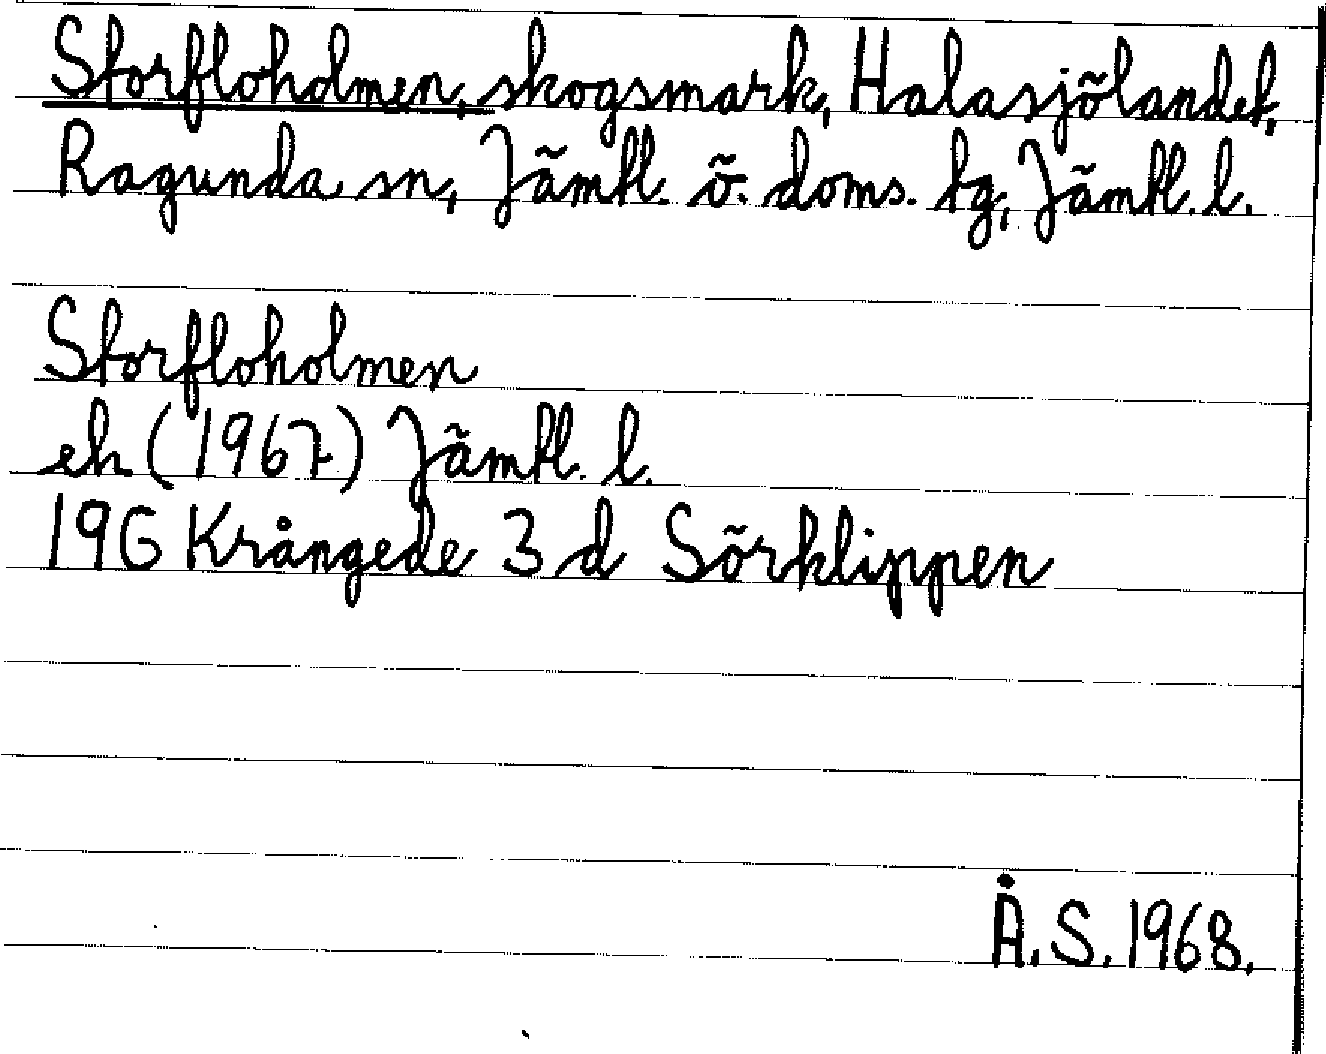 Storfloholmen, skogsmark, Halasjölandet,
Ragunda sn, Jämtl. ö. doms. tg, Jämtl. l.
Storfloholmen
ek (1967) Jämtl. l.
19G Krångede 3 d Sörklippen
Å. S. 1968.